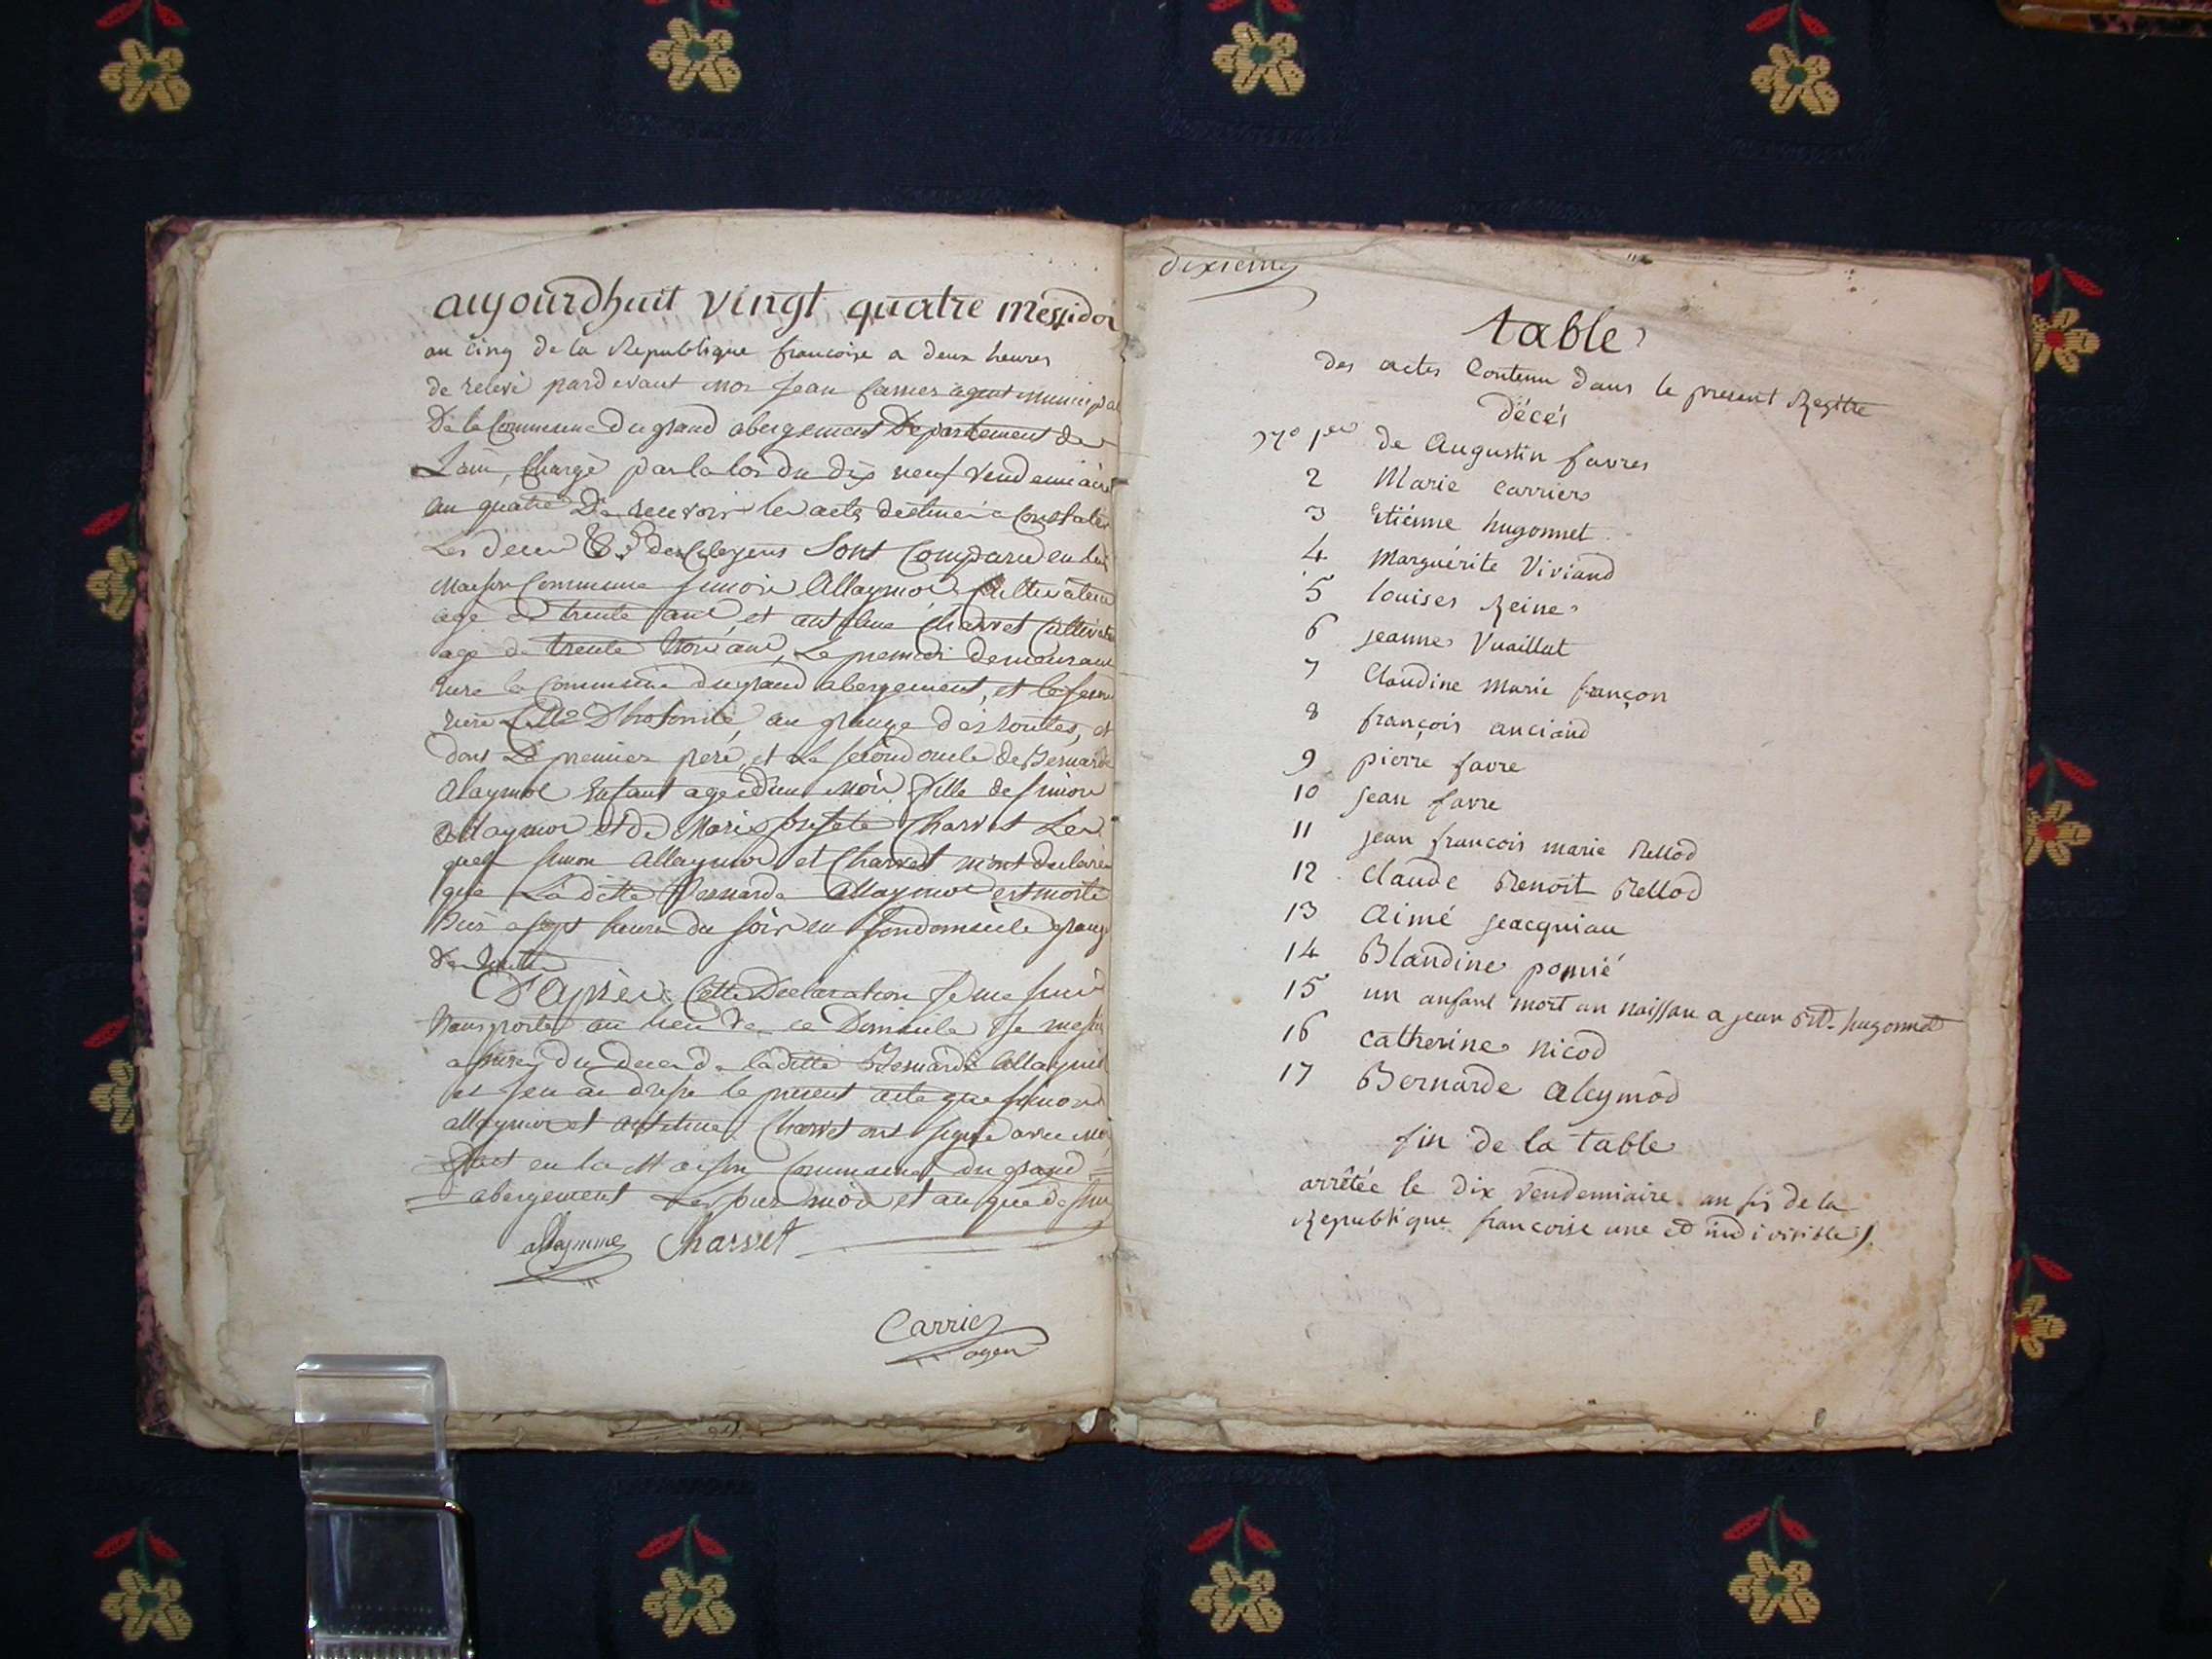 aujourdhuit vingt quatre messidor
an cinq de la Republique francoise a deux heures
de relevé pardevant moi jean Carrier agent municipal
De la Commune du grand abergement Departement de
Lain, Chargé par la loi du dix neuf vendemiaire
an quatre De recevoir les actes destiné a Constater
Les deces des Citoyens Sont Comparu en la
Maison Commune simon Allaymor Cultivateur
agé de trente ans, et anthelme Charvet Cultivateur
agé de trente trois ans, Le premier demeurant
riere la Commune du grand abergement, et le second
riere au grange des routes, et
dont Le premier pere, et Le second oncle de Bernarde
Alaymoe Enfant agée d'un moi fille de simon
allaymor et de Marie josete Charvet Les
quels simon allaymor et Charvet mont declaré
que La ditte Bernarde allaymor est morte
hier a sept heure du soir en son domicile grange
des routes
D'Après Cette Declaration je me suis
transporté au lieu de ce Domicile je me suis
assuré du deces de laditte Bernarde allaymor
et jen ai dressé le present acte que simon
allaymor et anthelme Charvet ont signé avec moi
fait en la Maison Commune du grand
abergement Les jour moi et an que dessus
allaymme Charvet
Carrier
agen
dixieme
table
des actes Contenu dans le present Registre
décés
No 1er de Augustin favres
2 Marie Carriers
3 Etiénne hugonnet
4 Marguérite Viviand
5 louises Reine
6 jeanne Vuaillat
7 Claudine Marie françon
8 françois anciand
9 pierre favre
10 jean favre
11 jean francois marie Rellod
12 Claude Benoit Rellod
13 Aimé jeacquiau
14 Blandine pomié
15 un anfant mort an naissan a jean Bte hugonnet
16 Catherine nicod
17 Bernarde aleymod
fin de la table
arrêtée le dix vendemiaire an six de la
Republique francoise une et indivisible